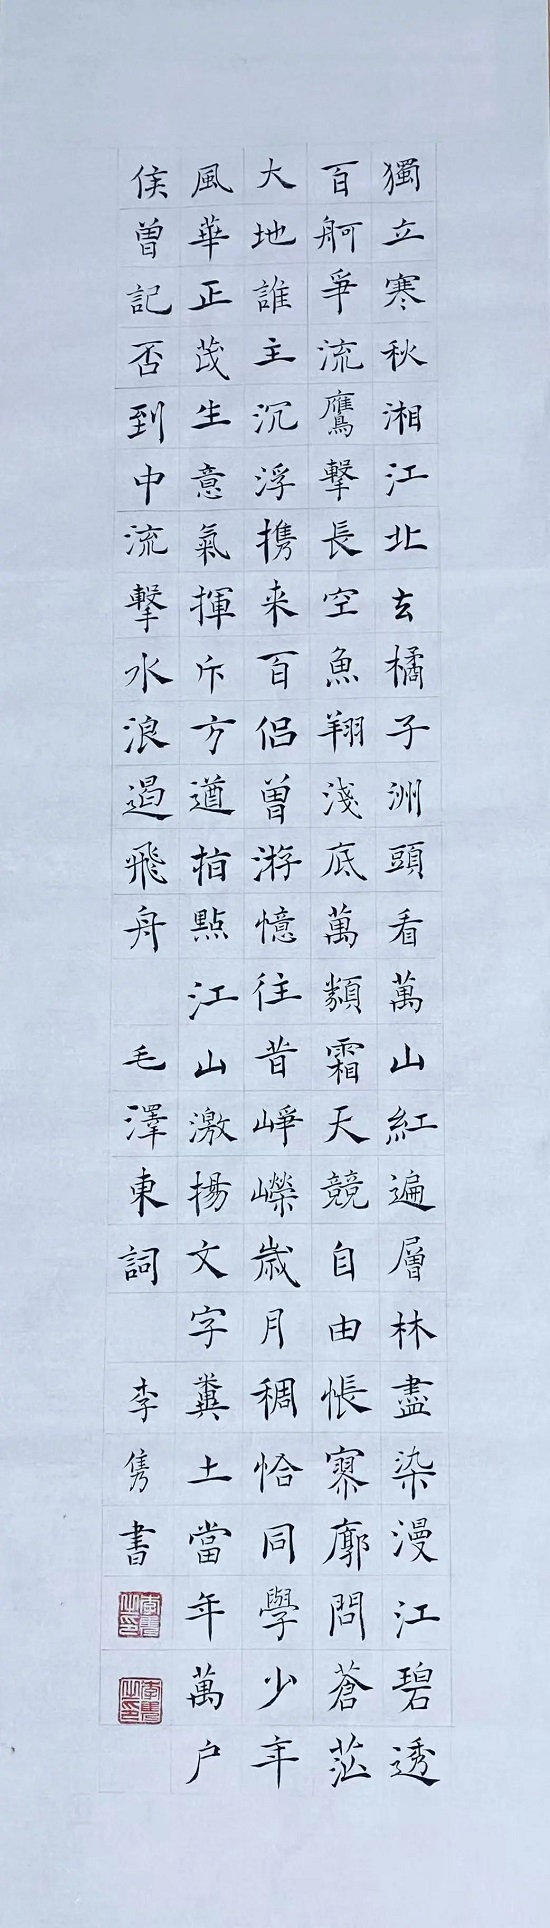 獨立寒秋湘江北去橘子洲頭看萬山紅遍層林盡染漫江碧透
百舸爭流鷹擊長空魚翔淺底萬類霜天競自由悵寥廓問蒼茫
大地誰主沉浮携来百侣曾游憶往昔崢嶸歲月稠恰同學少年
風華正茂生意氣揮斥方遒指點江山激揚文字糞土當年萬户
侯曾記否到中流擊水浪遏飛舟 毛澤東詞 李隽書